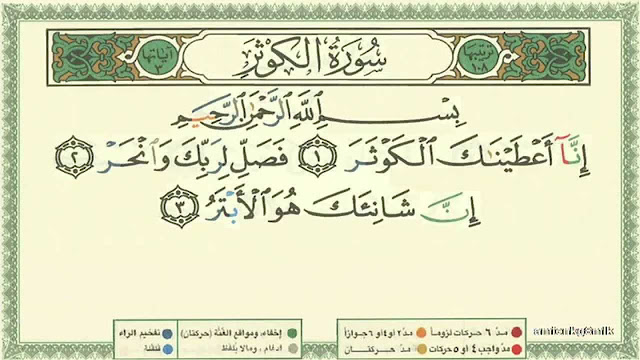 آياتها ٣ سُورَةُ الكَوْثَرِ ترتيبها ١٠٨
بِسْمِ ٱللَّهِ ٱلرَّحْمَٰنِ ٱلرَّحِيمِ
إِنَّآ أَعْطَيْنَٰكَ ٱلْكَوْثَرَ ١ فَصَلِّ لِرَبِّكَ وَٱنْحَرْ ٢
إِنَّ شَانِئَكَ هُوَ ٱلْأَبْتَرُ ٣
مدّ ٦ حركات لزوماً مدّ ٢ او ٤ او ٦ جوازاً إخفاء، ومواقع الغُنَّة (حركتان) تفخيم الراء
مدّ واجب ٤ او ٥ حركات مدّ حركتان ادغام، ومالا يُلفَظ قلقلة